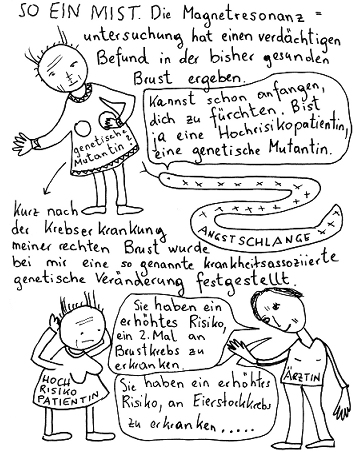 SO EIN MIST. Die Magnetresonanz =
untersuchung hat einen verdächtigen
Befund in der bisher gesunden
Brust ergeben.
Kannst schon anfangen,
dich zu fürchten. Bist
ja eine Hochrisikopatientin,
eine genetische Mutantin.
genetische
Mutantin
ANGSTSCHLANGE
Kurz nach
der Krebserkrankung
meiner rechten Brust wurde
bei mir eine so genannte krankheitsassoziierte
genetische Veränderung festgestellt.
Sie haben ein
erhöhtes Risiko,
ein 2. Mal an
Brustkrebs zu
erkranken.
Sie haben ein erhöhtes
Risiko, an Eierstockkrebs
zu erkranken.....
HOCH
RISIKO
PATIENTIN
ÄRZTIN